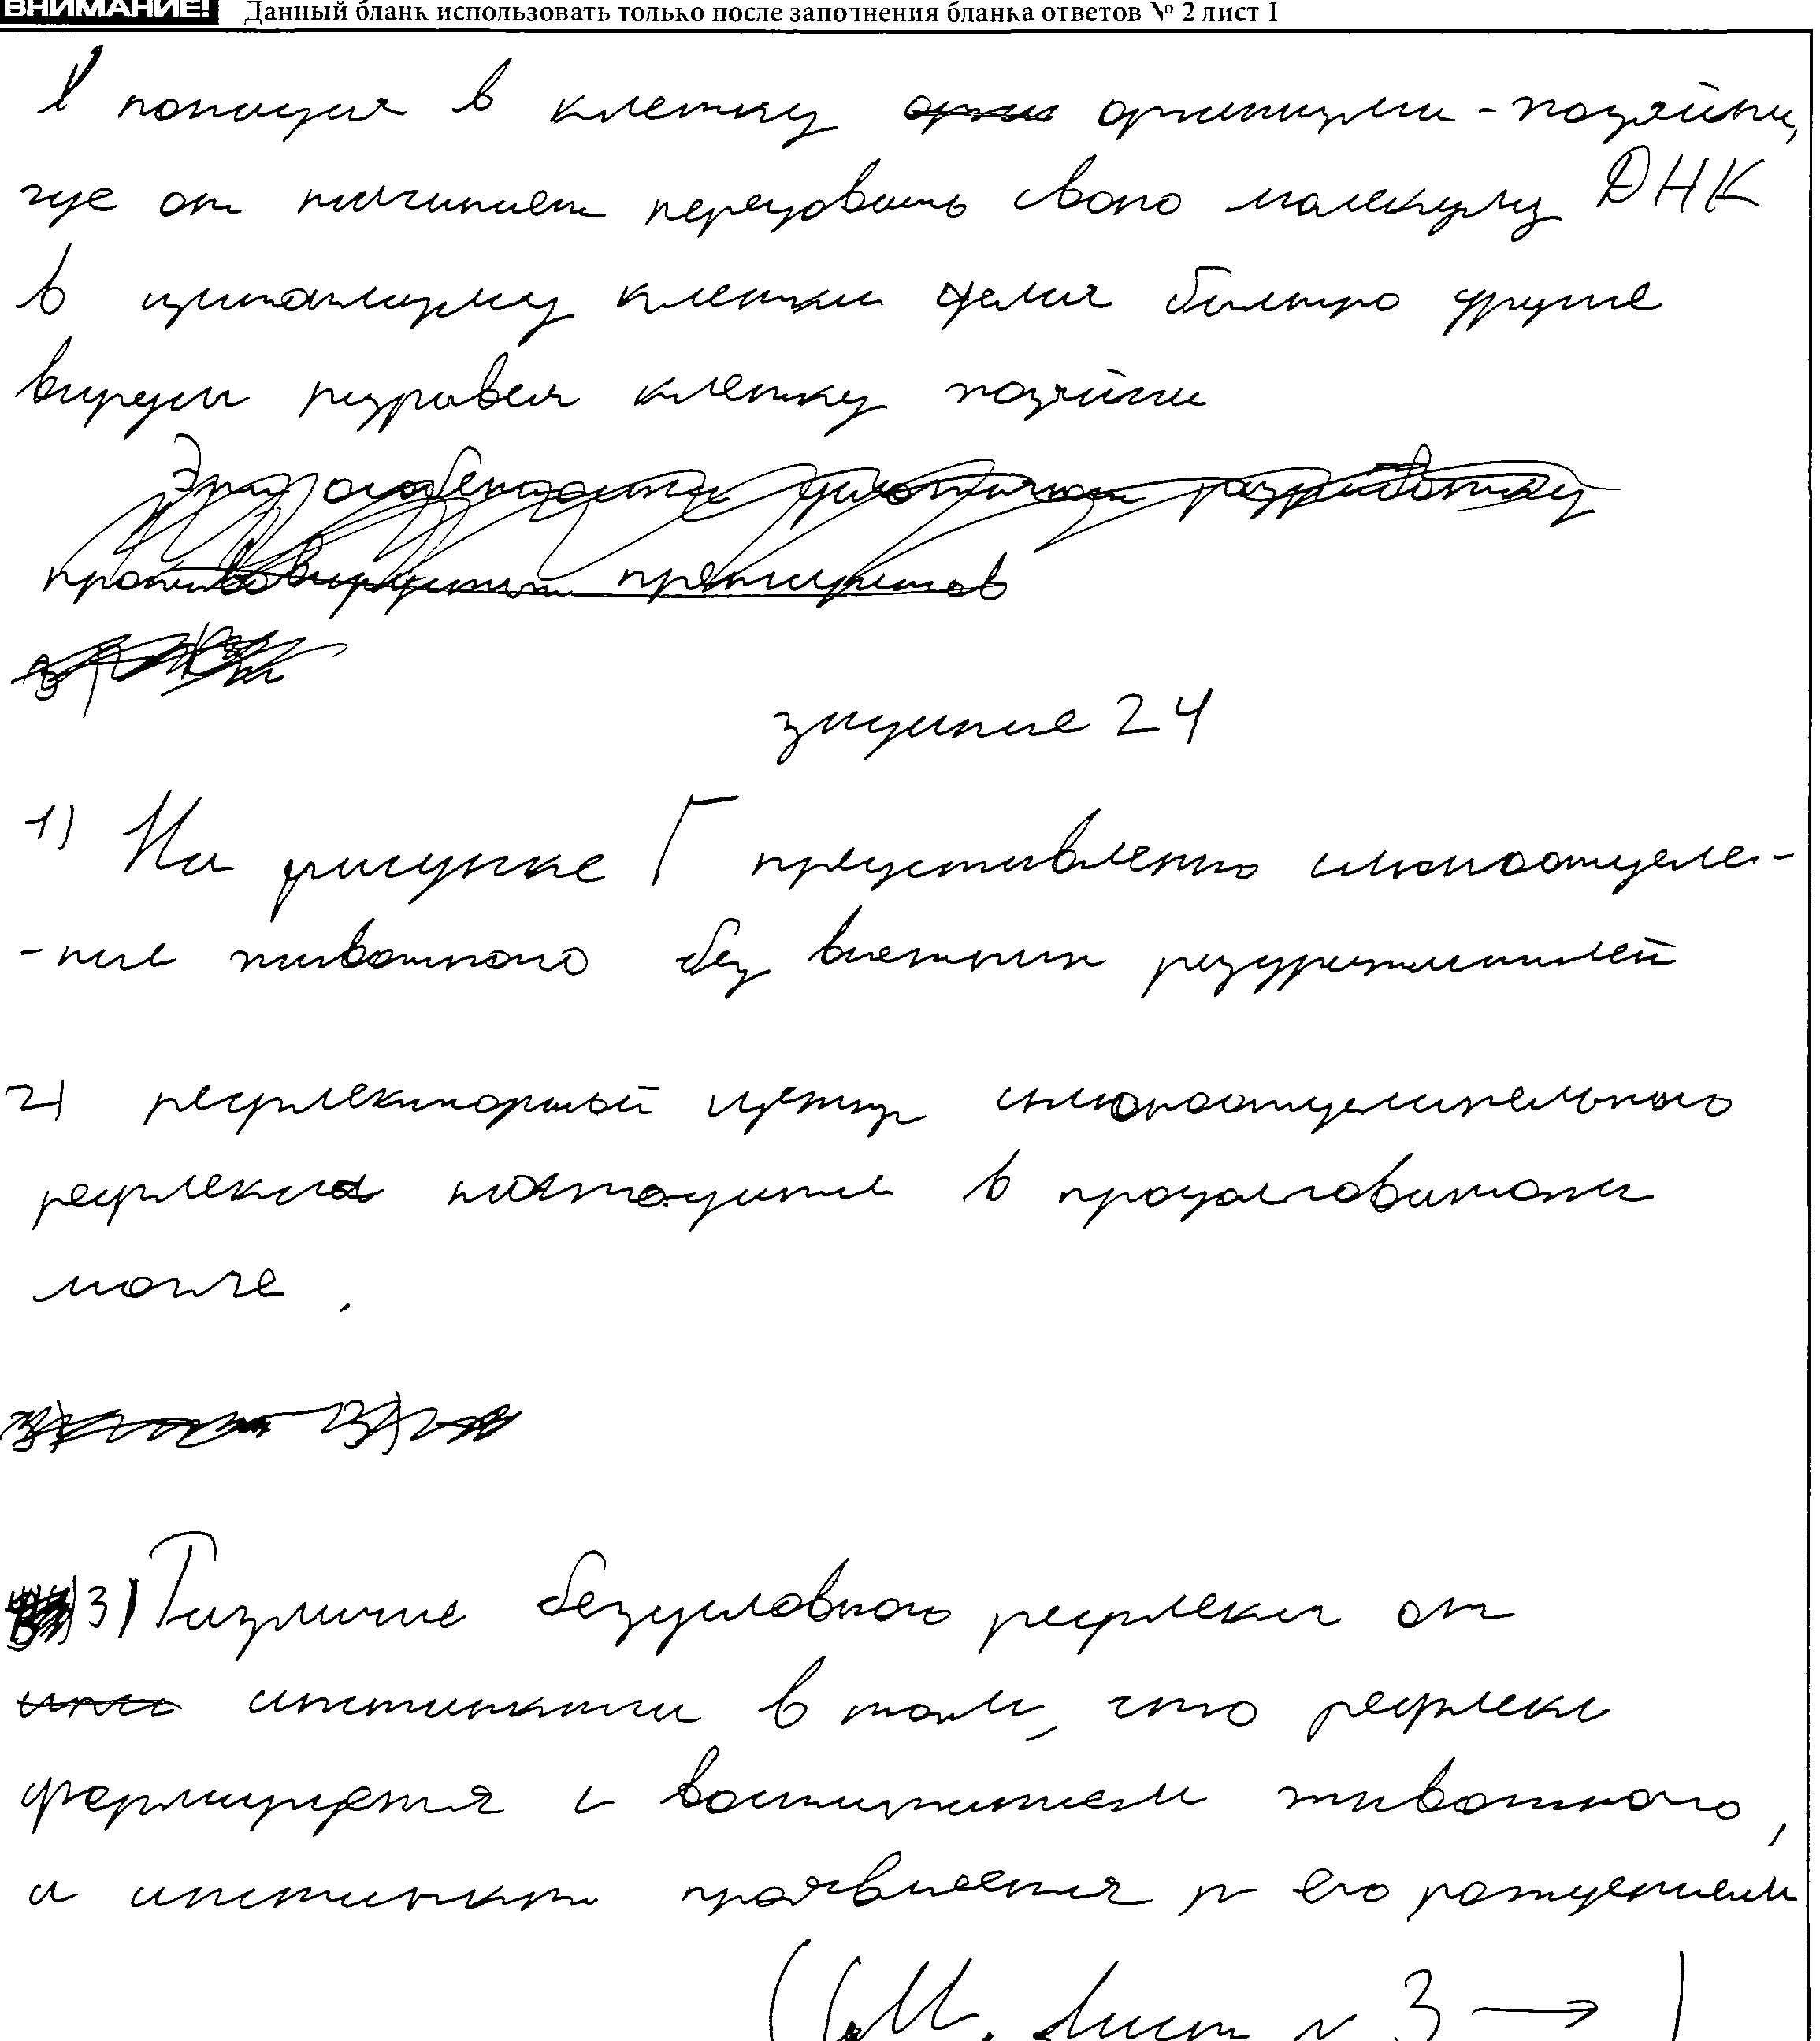 ВНИМАНИЕ! Данный бланк использовать только после заполнения бланка ответов № 2 лист 1
попадая в клетку организма-хозяина,
где он начинает передовать свою молекулу ДНК
в цитоплазму клетки делая быстро другие
вирусы разрывая клетку хозяина
Эти особенности усложняют разработку
противовирусных препаратов
задание 24
1) На рисунке Г представленно слюноотделе-
-ние животного без внешних раздражителей
2) рефлекторный центр слюноотделительного
рефлекса находится в продолговатом
мозге.
3) Различие безусловного рефлекса от
инстинкта в том, что рефлекс
формируется с воспитанием животного,
а инстинкт проявляется с его рождением
(См. лист № 3 → )